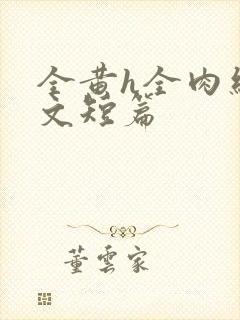 全黄h全肉细
文短篇
董云家